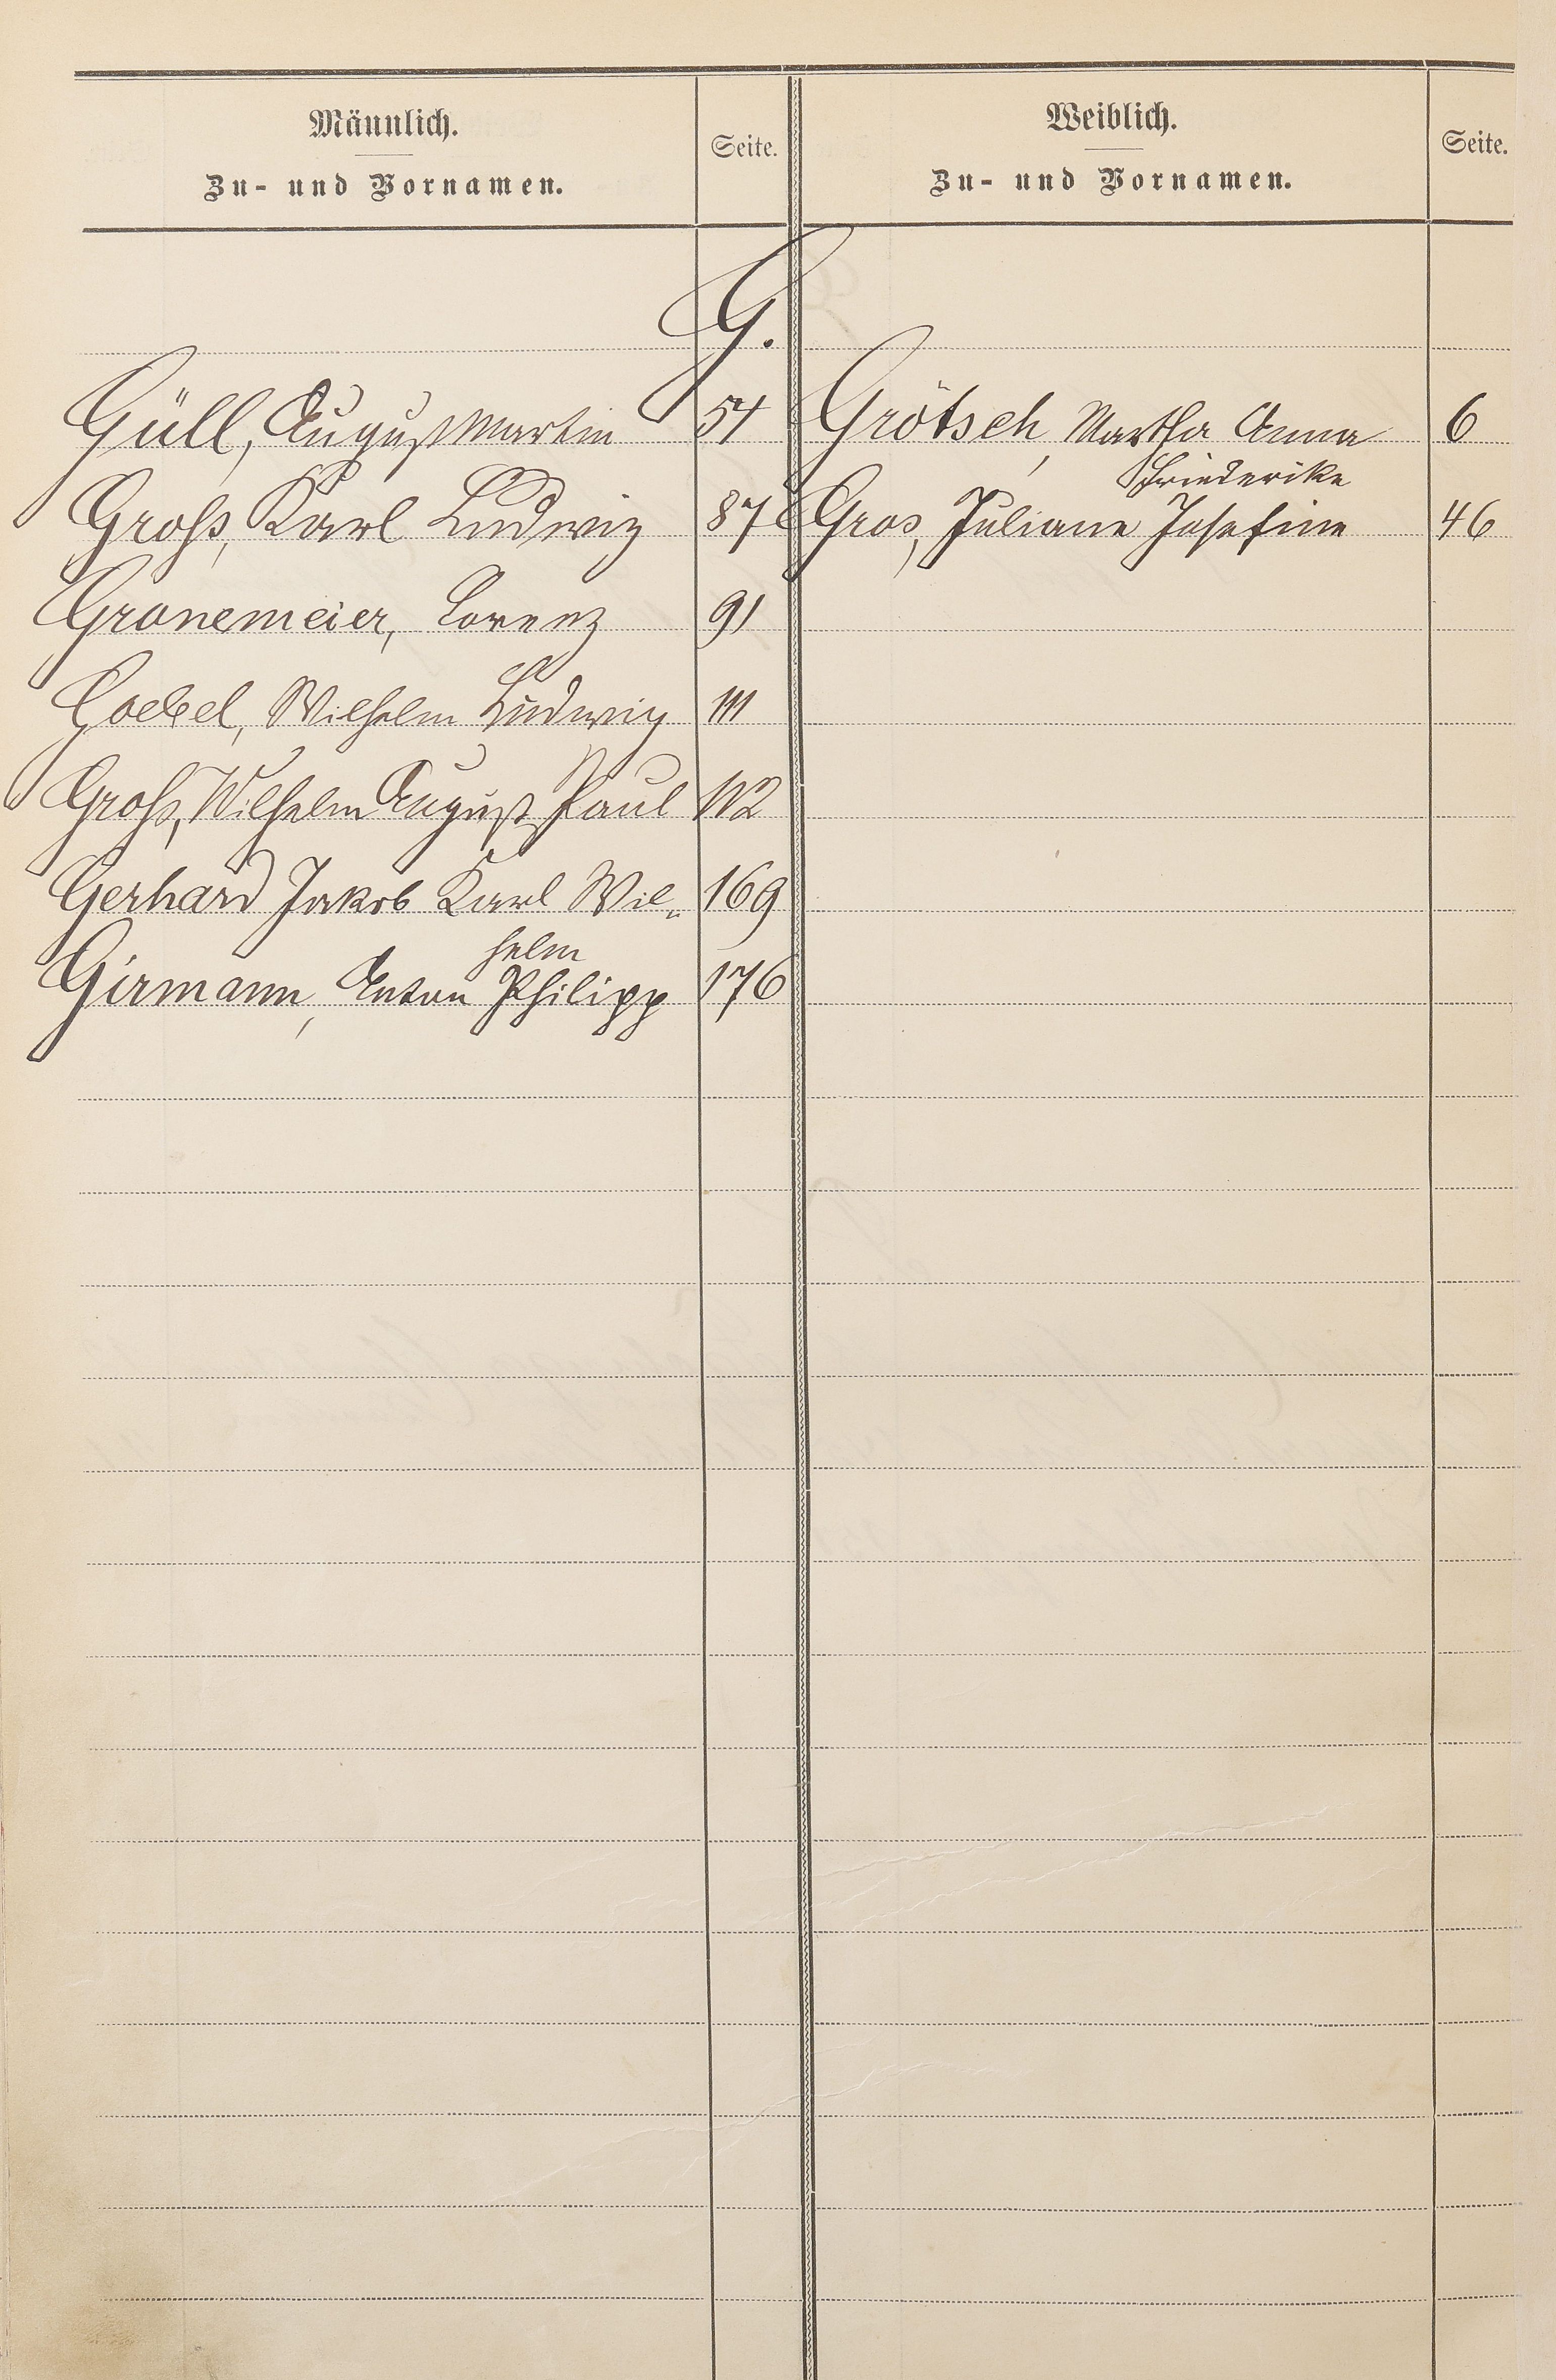 Männlich.
Zu- und Vornamen.
Seite.
Weiblich.
Zu- und Vornamen.
Seite.
G.
Güll, August Martin 54
Groß, Karl Ludwig 87
Gronemeier, Lorenz 91
Goebel, Wilhelm Ludwig 111
Groß, Wilhelm August Paul 112
Gerhard Jakob Karl Wil-
helm 169
Girmann, Anton Philipp 176
Grötsch, Martha Anna 6
Friederike
Gros, Juliane Josefine 46